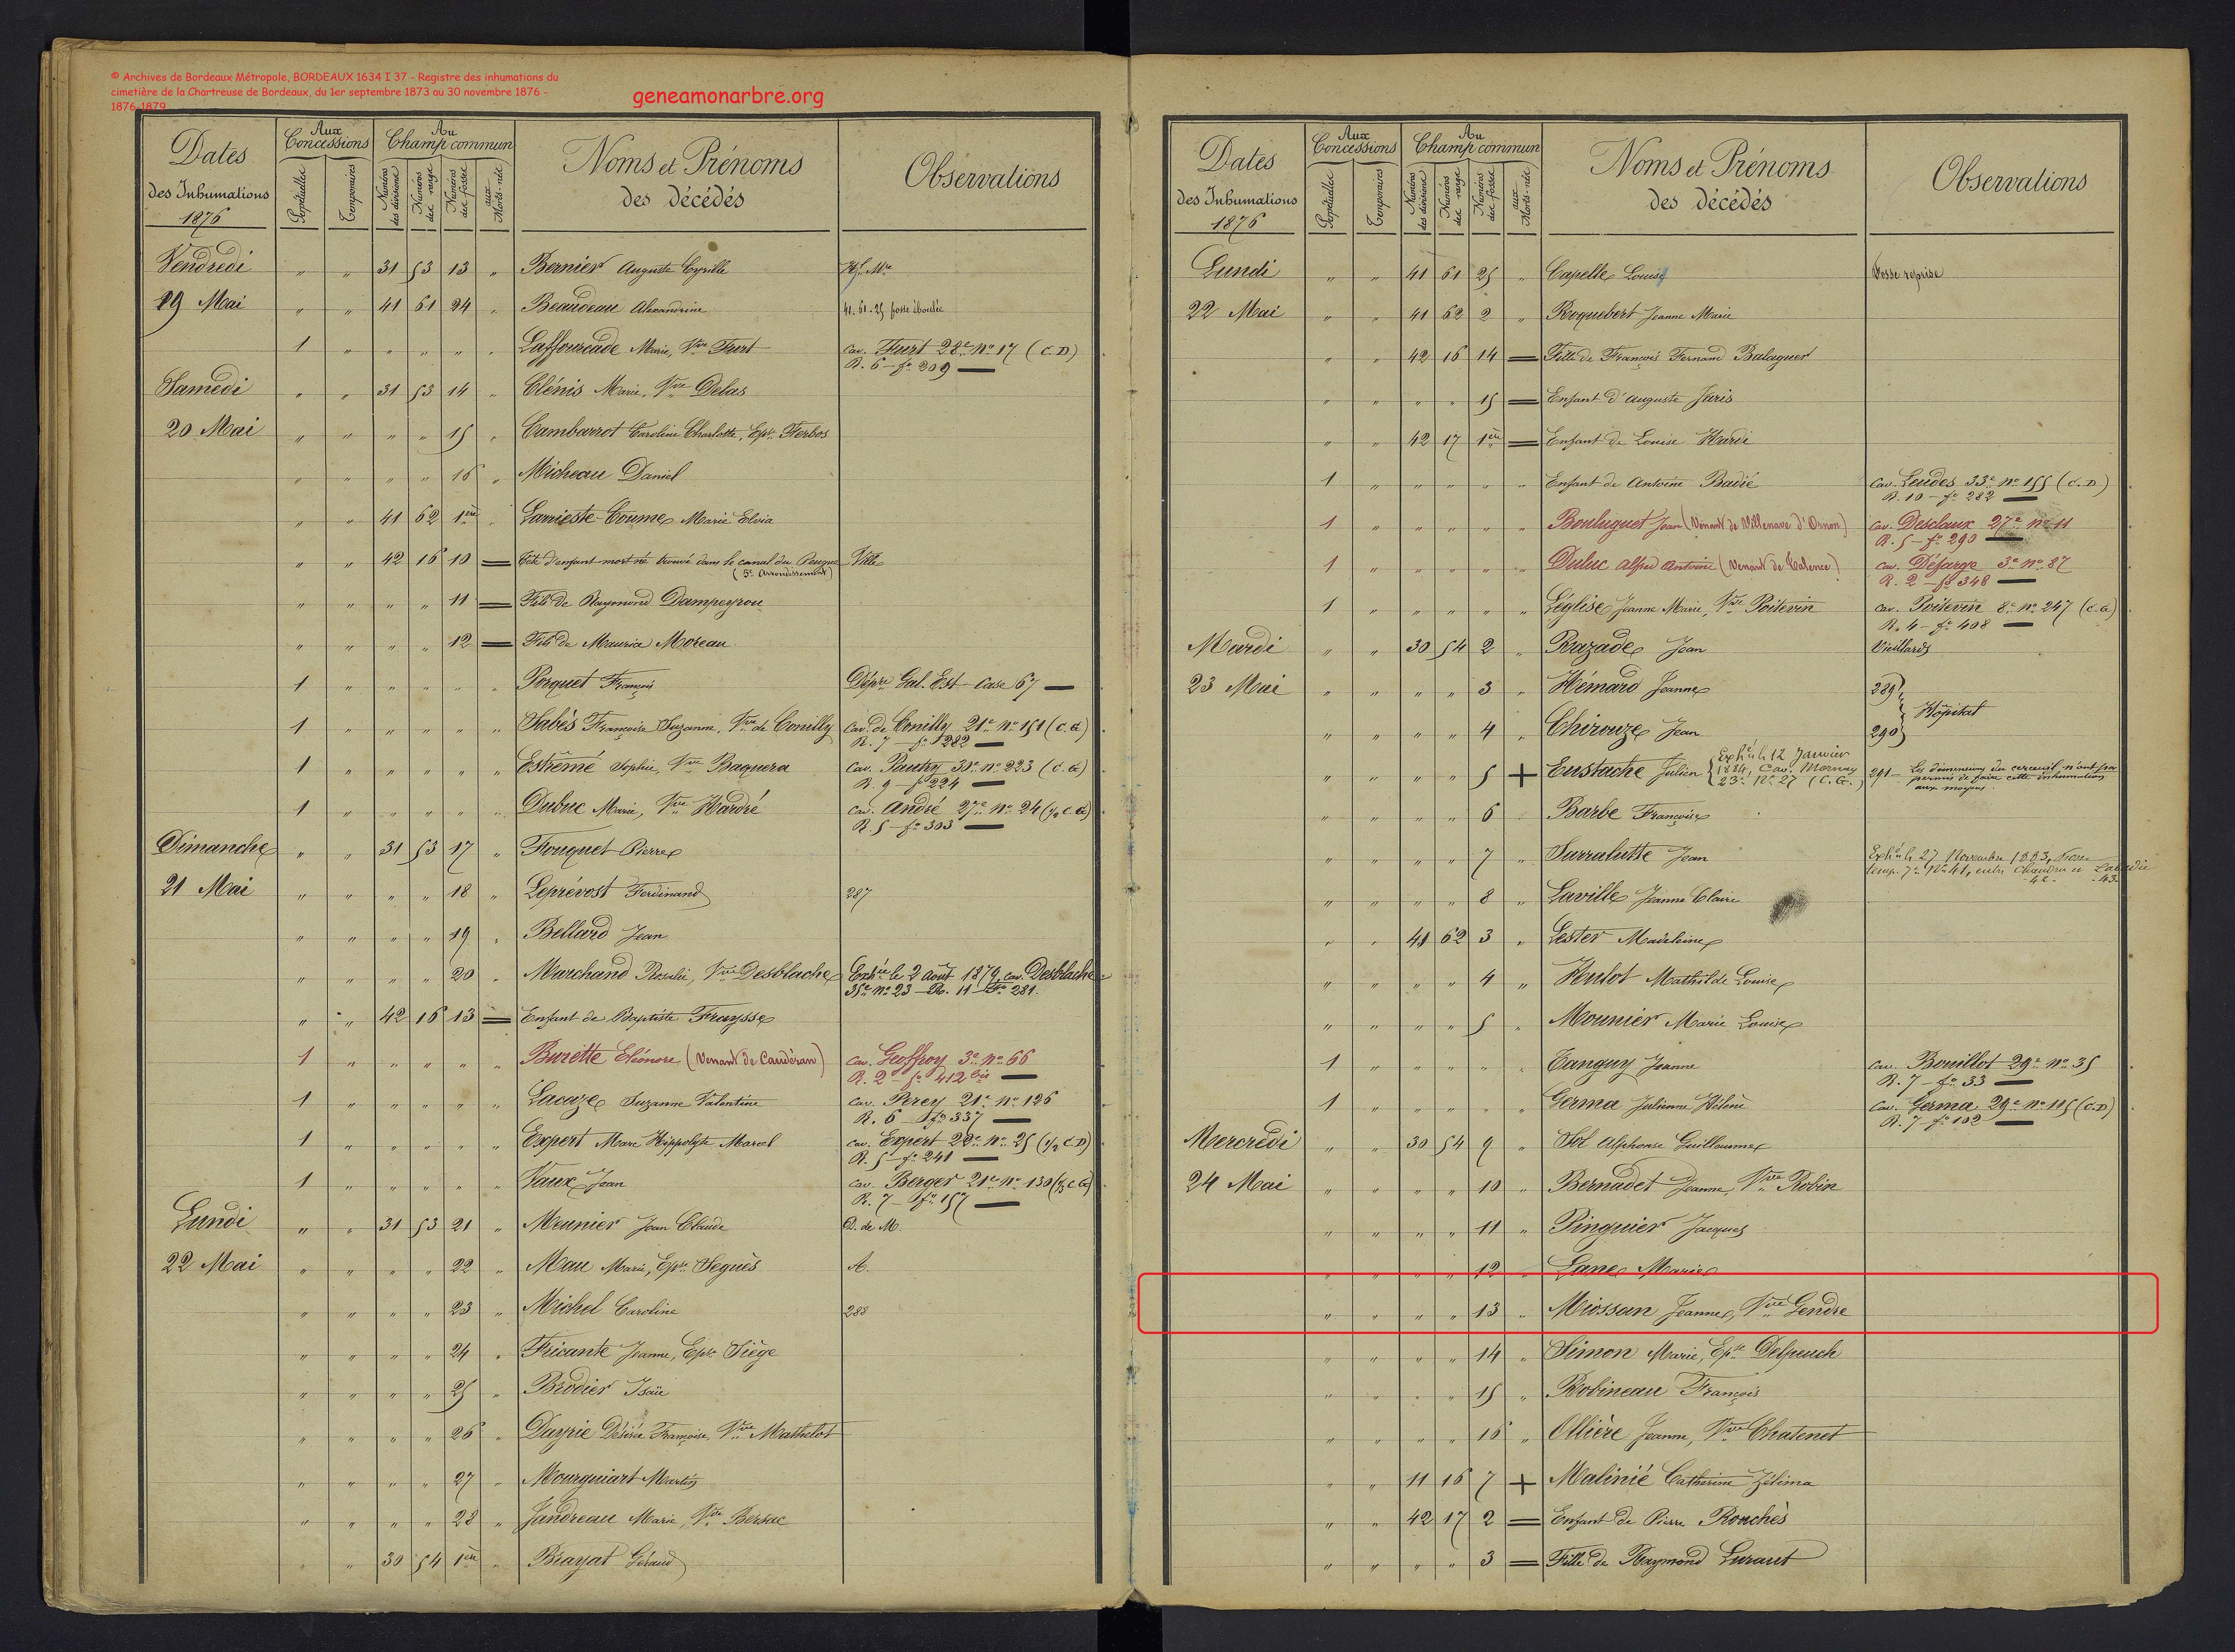 © Archives de Bordeaux Métropole, BORDEAUX 1634 I 37 - Registre des inhumations du
cimetière de la Chartreuse de Bordeaux, du 1er septembre 1873 au 30 novembre 1876 -
1876-1879
geneamonarbre.org
Dates des Inhumations 1876
Aux Concessions
Perpétuelles
Temporaires
Au Champ commun
Numéros des divisions
Numéros des rangs
Numéros des fosses
aux Morts-nés
Noms et Prénoms des décédés
Observations
Vendredi " " 31 53 13 " Bernier Auguste Cyrille
19 Mai " " 41 61 24 " Beaudeau Alexandrine 41. 61. 25 fosse éboulée
1 " " " " " Laffourcade Marie, Vve Furt Cav. Furt 28e No 17 (C.D)
R. 6 - fo 209 —
Samedi " " 31 53 14 " Clénis Marie, Vve Delas
20 Mai " " " " 15 " Cambarrot Caroline Charlotte, Epse Ferbos
" " " " 16 " Micheau Daniel
" " 41 62 1ère " Larrieste-Coume Marie Elvia
" " 42 16 10 = Tête d'enfant mort né trouvé dans le canal du Peugue Ville
(5e Arrondissement)
" " " " 11 = Fils de Raymond Dampeyrou
" " " " 12 = Fils de Maurice Moreau
1 " " " " " Porquet François Dépre Gal. Est - Case 67 —
1 " " " " " Sabès Françoise Suzanne, Vve de Conilly Cav. de Conilly 21e No 151 (C.G)
R. 7 - fo 282 —
1 " " " " " Estrémé Sophie, Vve Baquera Cav. Pauthy 30e No 223 (C.G)
R. 9 - fo 224 —
1 " " " " " Dubuc Marie, Vve Hardré Cav. André 27e No 24 (1/2 C.G)
R. 5 - fo 303 —
Dimanche " " 31 53 17 " Fouquet Pierre
21 Mai " " " " 18 " Leprévost Ferdinand 287
" " " " 19 " Bellard Jean
" " " " 20 " Marchand Rosalie, Vve Desblache Exhée le 2 Août 1879, cav. Desblache
35e No 23 - R. 11 - Fo 281.
" " 42 16 13 = Enfant de Baptiste Fraysse
1 " " " " " Burette Eléonore (Venant de Caudéran) Cav. Geoffroy 3e No 66
R. 2 - fo 412 bis —
1 " " " " " Lacaze Suzanne Valentine Cav. Perey 21e No 126
R. 6 - fo 337 —
1 " " " " " Expert Marc Hippolyte Marcel Cav. Expert 28e No 25 (1/2 C.D)
R. 5 - fo 241 —
1 " " " " " Vaux Jean Cav. Berger 21e No 130
R. 7 - fo 157 —
Lundi " " 31 53 21 " Meunier Jean Claude D. de M.
22 Mai " " " " 22 " Mau Marie, Epse Seguès A.
" " " " 23 " Michel Caroline 288
" " " " 24 " Fricante Jeanne, Epse Siège
" " " " 25 " Brodier Isaïe
" " " " 26 " Dayrie Désirée Françoise, Vve Mathelot
" " " " 27 " Mourguiart Martin
" " " " 28 " Jandreau Marie, Vve Bersac
" " 30 54 1ère " Brayat Géraud
Dates des Inhumations 1876
Aux Concessions
Perpétuelles
Temporaires
Au Champ commun
Numéros des divisions
Numéros des rangs
Numéros des fosses
aux Morts-nés
Noms et Prénoms des décédés
Observations
Lundi " " 41 61 25 " Capelle Louise Fosse reprise
22 Mai " " 41 62 2 " Roquebert Jeanne Marie
" " 42 16 14 = Fille de François Fernand Balaguer
" " " " 15 = Enfant d'Auguste Jaris
" " 42 17 1ère = Enfant de Louise Hardi
1 " " " " " Enfant de Antoine Badié Cav. Leudes 33e No 155 (C.D)
R. 10 - fo 282 —
1 " " " " " Bouluguet Jean (Venant de Villenave d'Ornon) Cav. Desclaux 27e No 11
R. 5 - fo 290 —
1 " " " " " Duluc Alfred Antoine (Venant de Talence) Cav. Défarge 3e No 87
R. 2 - fo 348 —
1 " " " " " Léglise Jeanne Marie, Vve Poitevin Cav. Poitevin 8e No 247 (C.G)
R. 4 - fo 408 —
Mardi " " 30 54 2 " Razade Jean Vieillards
23 Mai " " " " 3 " Hémard Jeanne 289
Hôpital
" " " " 4 " Chirouze Jean 290
" " " " 5 + Eustache Julien Exhé le 12 Janvier 1884, Cav. Mornay 23e No 27 (C.G.) 291 - Les dimensions du cercueil n'ont pas
permis de faire cette inhumation
aux moyens.
" " " " 6 " Barbe Françoise
" " " " 7 " Sarralutte Jean Exhé le 27 Novembre 1883,
temp. 7e No 41, entre Chaudru et Labadie
42. 43.
" " " " 8 " Laville Jeanne Claire
" " 41 62 3 " Lester Madeleine
" " " " 4 " Hulot Mathilde Louise
" " " " 5 " Mounier Marie Louise
1 " " " " " Tanguy Jeanne Cav. Bouillot 29e No 35
R. 7 - fo 33 —
1 " " " " " Germa Julienne Hélène Cav. Germa 29e No 115 (C.D)
R. 7 - fo 102 —
Mercredi " " 30 54 9 " Sol Alphonse Guillaume
24 Mai " " " " 10 " Bernadet Jeanne, Vve Robin
" " " " 11 " Pinguier Jacques
" " " " 12 " Lane Marie
" " " " 13 " Miossan Jeanne, Vve Gendre
" " " " 14 " Simon Marie, Epse Delpeuch
" " " " 15 " Robineau François
" " " " 16 " Ollière Jeanne, Vve Chatenet
" " 11 16 7 + Malinié Catherine Zélima
" " 42 17 2 = Enfant de Pierre Rouchès
" " " " 3 = Fille de Raymond Luraut